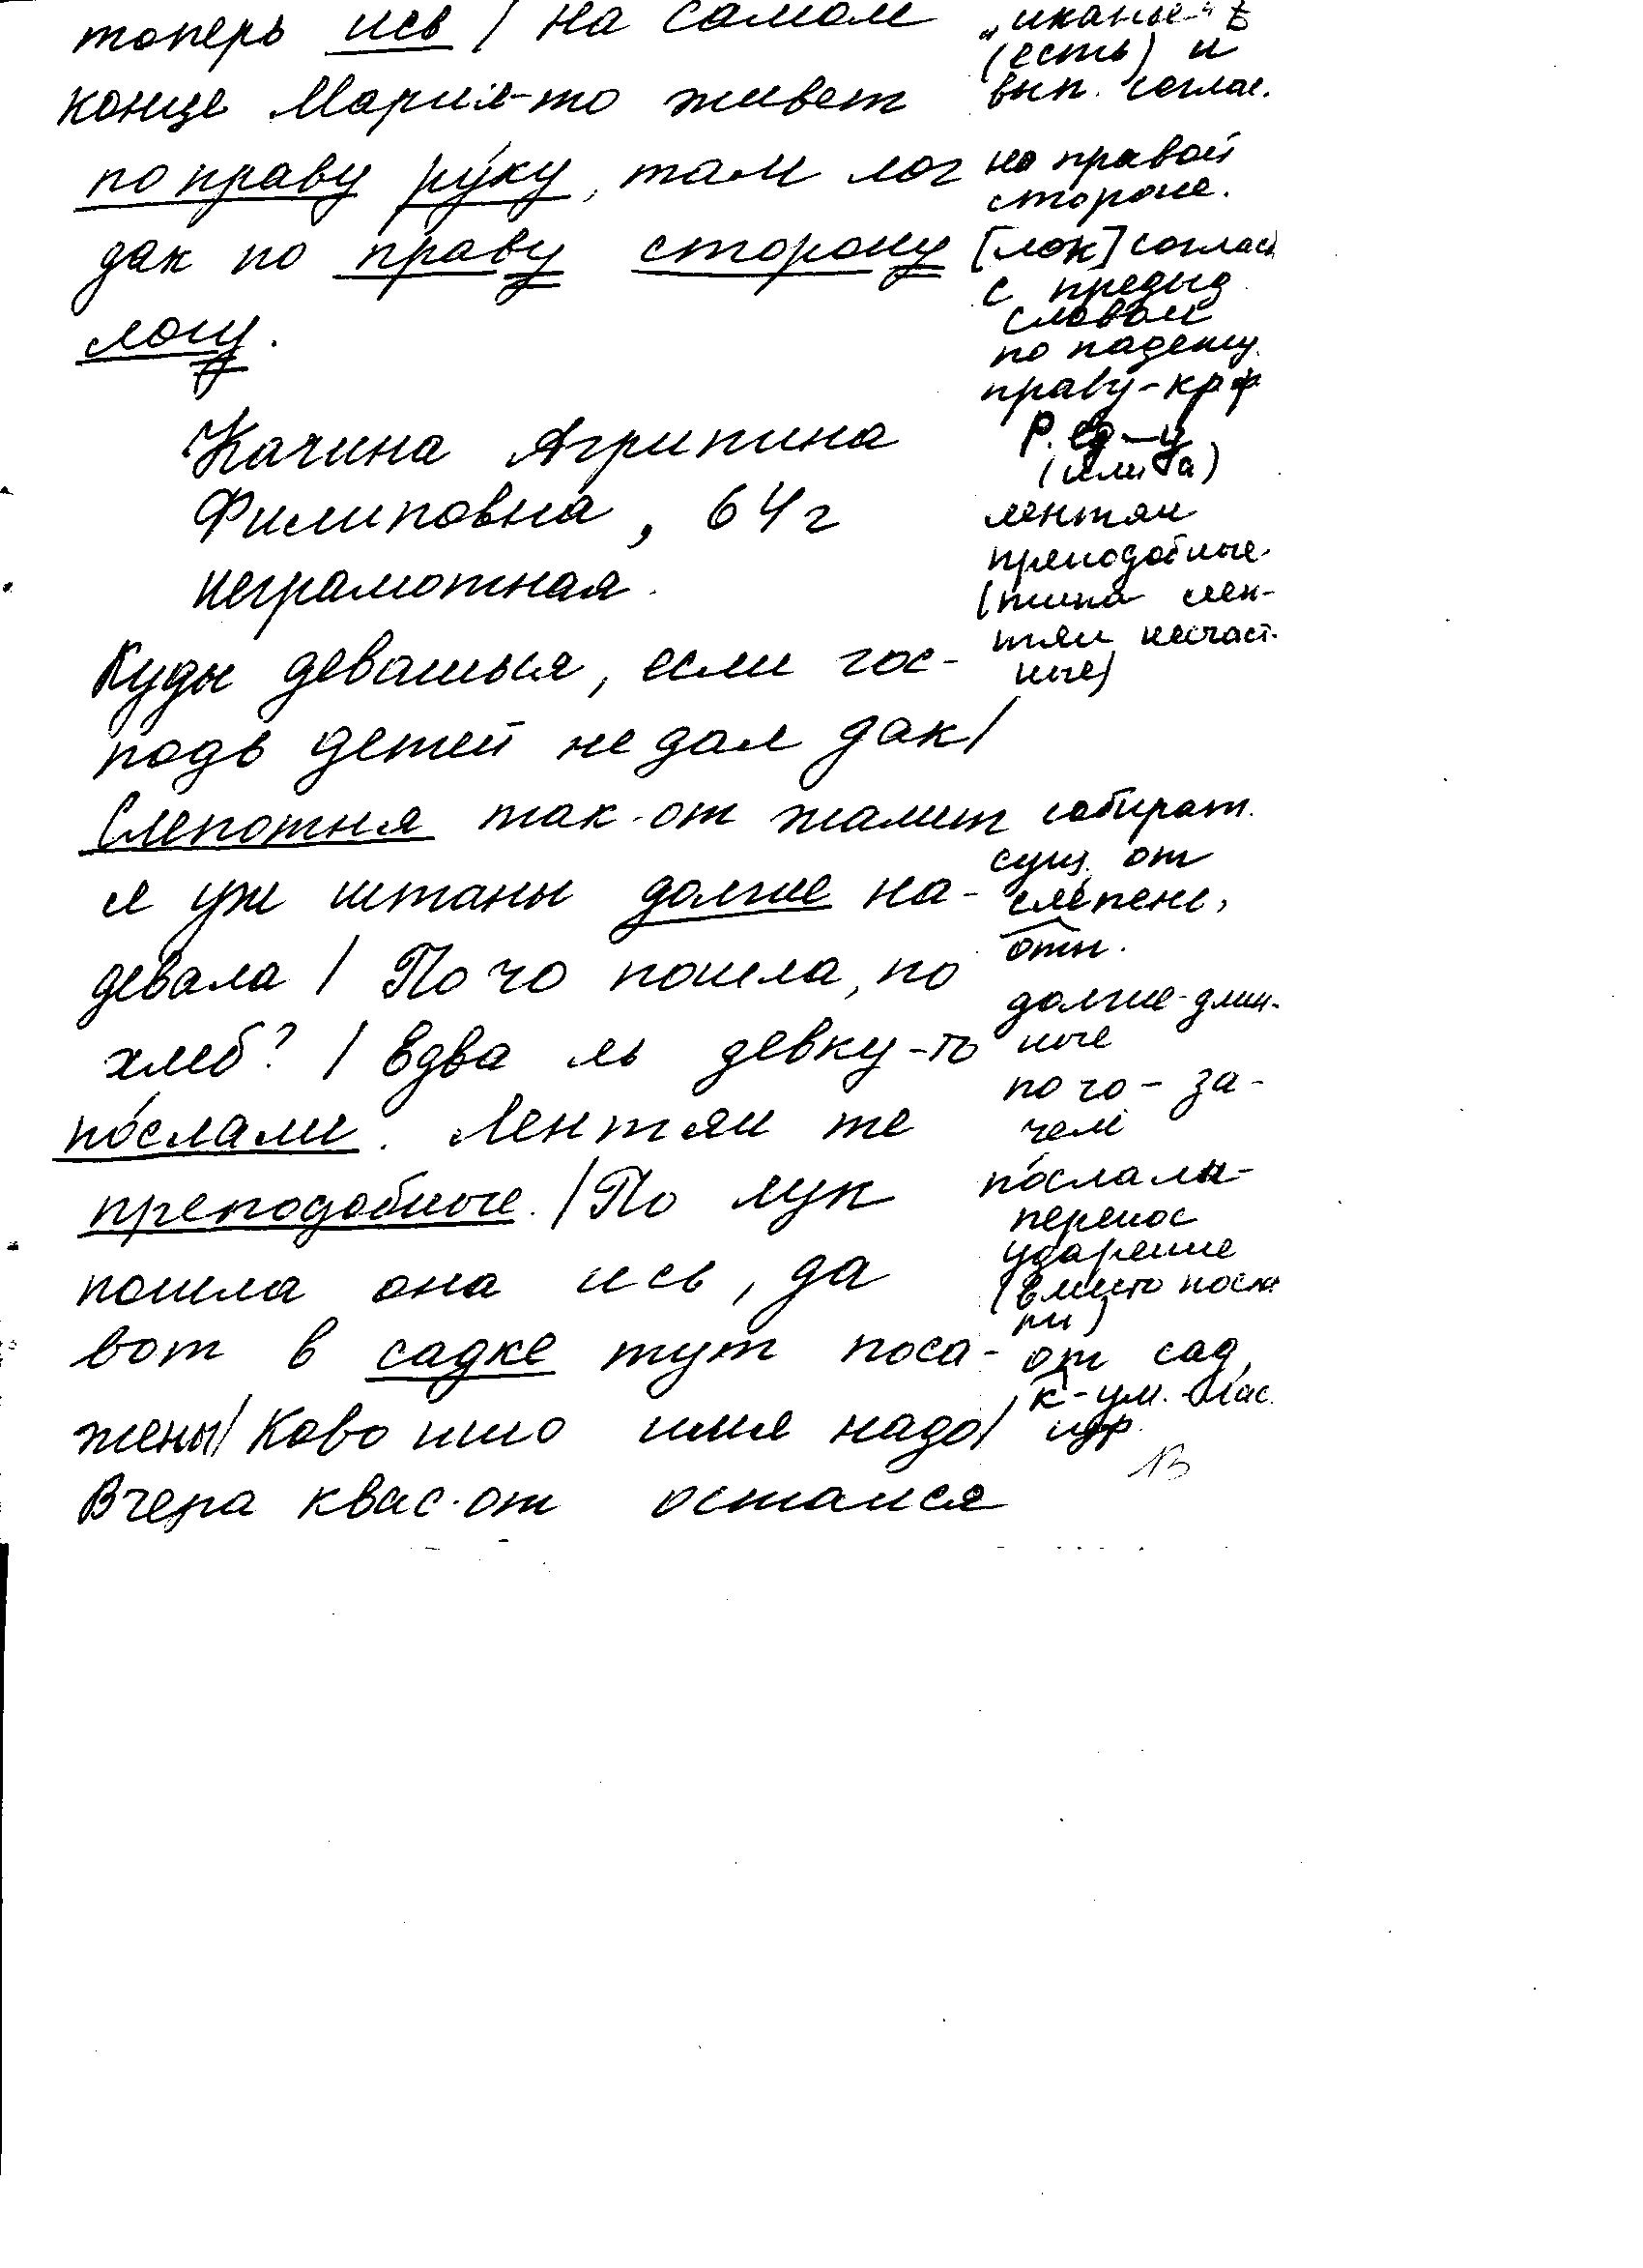 топерь ись / на самом
конце Мария-то живет
по праву ру́ку, там лог
дак по праву сторону
логу.
Качина Агрипина
Филиповна, 64 г
неграмотная.
Куды девашься, если гос-
подь детей не дал дак/
Слепотня так-от жалит
я уж штаны долгие на-
девала / По чо пошла, по
хлеб? / Едва ль девку-то
по́слали. Лентяи же
преподобные. / По лук
пошла она ись, да
вот в садке тут поса-
жены/ Ково ишо имя надо/
Вчера квас-от остался
„иканье"
(есть) и
вып. соглас.
на правой
стороне.
[лок] соглас
с предыд.
словом
по падежу.
праву-кр ф
Р. ед -у
(или а)
лентяи
преподобные.
(типа лен-
тяи несчаст-
ные)
собират.
сущ. от
слепень,
отн.
долгие-длин-
ные
по чо - за-
чем
по́слали-
перенос
ударение
(вместо посла
ли)
от сад,
к-ум.-лас.